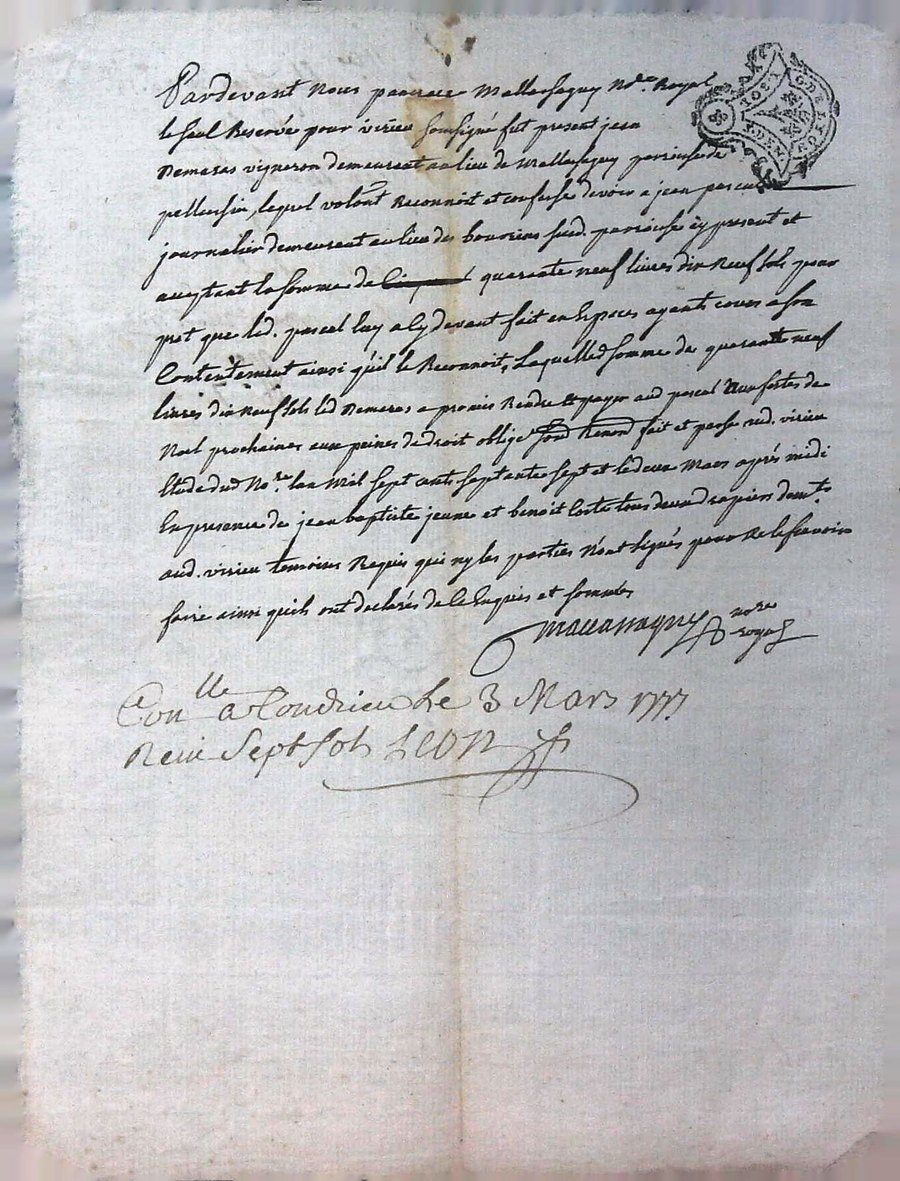 Pardevant Nous Mallassagny Nore. Royal
le seul Reservée pour virieu soussigné fut present jean
Demeras vigneron demeurant au lieu de Mallassagny parroisse de
pellussin, lequel volont. Reconnoit et confesse devoir a jean pascal
journalier demeurant au lieu des bourins sud. parroisse icy present et
aceptant la somme de quarante neuf livres dix Neuf sols pour
pret que led. pascal luy a cy devant fait en Espèces ayants cours a son
Contentement ainsi qu'il le Reconnoit, Laquelled. somme de quarante neuf
livres dix Neuf sols led Demeras a promis Rendre et payer aud pascal aux fertes de
Noel prochaines aux peines de droit oblige Soud Renond fait et passé aud. virieu
Etude dud Nore. lan Mil Sept cents septante sept et le deux Mars après midi
En presence de jean baptiste jeune et benoit Coste tous deux drapiers demts.
aud. virieu temoins Requis qui ny les parties N'ont signés pour ne le scavoir
faire ainsi quils ont declarés de ce Enquis et sommés
Mallassagny nore
royal
Conlle a Condrieu Le 3 Mars 1777
Reçu Sept sols LEON
G. DE LYON